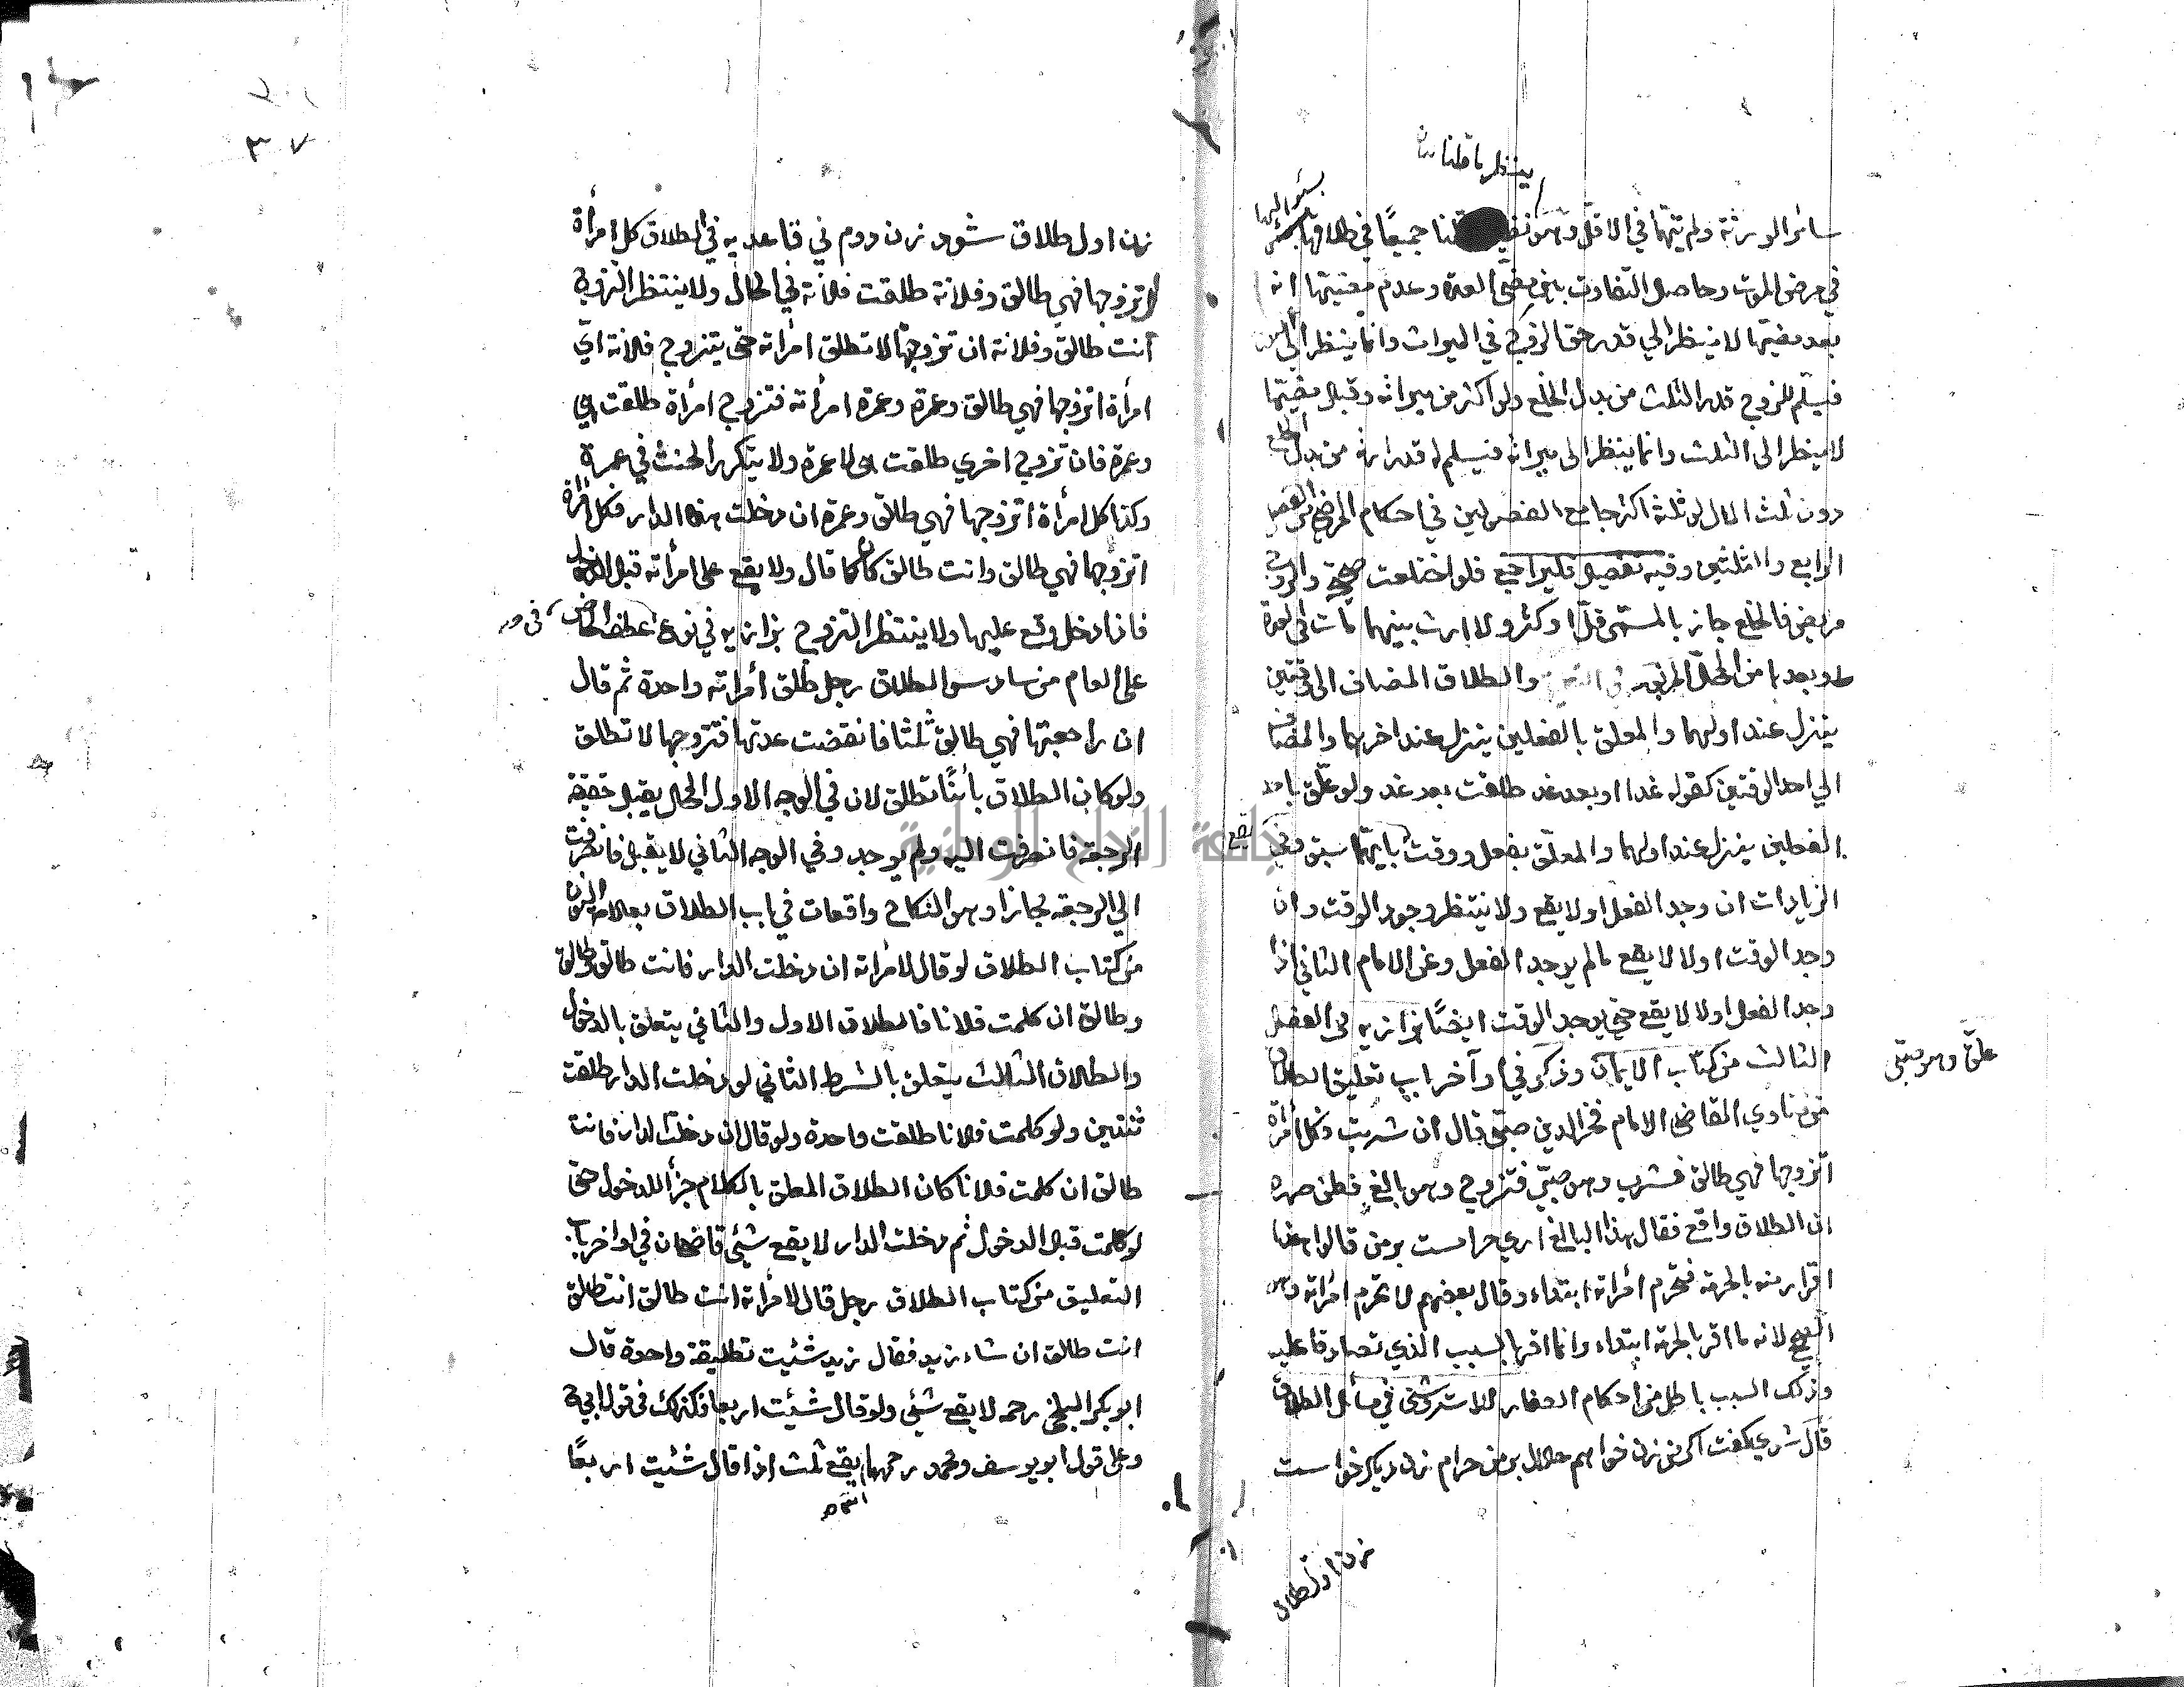 ينظر ما قلنا
سائر الورثة ولم يتهما في الاقل وهو نظير قلنا جميعًا في طلاقها بسؤالها
في مرض الموت وحاصل التفاوت بين مضي العدة وعدم مضيتها انه
بعد مضيتها لا ينظر الي قدر حق الزوج في الميراث وانما ينظر الى
فيسلّم للزوج قدر الثلث من بدل الخلع ولو اكثر من ميراثه وقبل مضيتها
لا ينظر الى الثلث وانما ينظر الى ميراثه فيسلم له قدر ارثه من بدل الخلع
دون ثلث المال لو ثلثه اكثر جامع الفصولين في احكام المرضى من الفصل
الرابع والثلثين وفيه تفصيل فليراجع فلو اختلعت صحيحة والزوج
مريض فالخلع جائز بالمسمى قلّ او كثر ولا ارث بينهما مات في العدة
او بعدها من المحل المزبور والطلاق المضاف الى وقتين
ينزل عند اولهما والمعلق بالفعلين ينزل عند اخرهما والمضاف
الي احد الوقتين كقوله غدا او بعد غد طلقت بعد غد ولو علّق باحد
الفعلين ينزل عند اولهما والمعلّق بفعل ووقت بايّهما سبق وفي يقع
الزيادات ان وجد الفعل اولا يقع ولا ينتظر وجود الوقت وان
وجد الوقت اولا لا يقع مالم يوجد الفعل وعن الامام الثاني اذا
وجد الفعل اولا لا يقع حتى يوجد الوقت ايضًا بزازيه في الفصل
الثالث من كتاب الايمان وذكر في آخر باب تعليق الطلاق
علق وهو صبي
من فتاوي القاضى الامام فخر الدين صبّى قال ان شربت فكل امرأة
اتزوجها فهي طالق فشرب وهو صبّي فتزوج وهو بالغ فظن صهره
ان الطلاق واقع فقال هذا البالغ اري حرامست بر من قالوا هذا
اقرار منه بالحرمة فتحرم امرأته ابتداء وقال بعضهم لا تحرم امرأته وهو
الصحيح لانه ما اقر بالحرمة ابتداء وانما اقر بالسبب الذي تصادقا عليه
وذلك السبب باطل من احكام الصغار للاستروشني في مسائل الطلاق
قال شوي بكفت اكر من زن خواهم حلال بر من حرام زن ديكر خواست
زن اول طلاق
٣٧
زن اول طلاق شود زن دوم ني قاعديه في الطلاق كل امرأة
اتزوجها فهي طالق وفلانة طلقت فلانة في الحال ولا ينتظر التزوج
أنت طالق وفلانة ان تزوجتها لا تطلق امرأته حتى يتزوج فلانة ايّ
امرأة اتزوجها فهي طالق وعمرة وعمرة امرأته فتزوج امرأة طلقت هي
وعمرة فان تزوج اخري طلقت هي لا عمرة ولا يتكرر الحنث في عمرة
وكذا كل امرأة اتزوجها فهي طالق وعمرة ان دخلت هذه الدار فكل امرأة
اتزوجها فهي طالق وانت طالق كان كما قال ولا يقع على امرأته قبل الدخول
فاذا دخل وقع عليها ولا ينتظر التزوج بزازيه في نوع عطف الخاص
على العام من سادس الطلاق رجل طلق أمرأته واحدة ثم قال
ان راجعتها فهي طالق ثلثا فانقضت عدتها فتزوجها لا تطلق
ولو كان الطلاق بائنًا تطلق لان في الوجه الاول المحل يقبل حقيقة
الرجعة فانصرفت اليه ولم يوجد وفي الوجه الثاني لا يقبل فانصرفت
الي الرجعة مجازا وهو النكاح واقعات في باب الطلاق بعلامة النون
من كتاب الطلاق لو قال لامرأته ان دخلت الدار فانت طالق وطالق
وطالق ان كلمت فلانا فالطلاق الاول والثاني يتعلق بالدخول
والطلاق الثالث يتعلق بالشرط الثاني لو دخلت الدار طلقت
ثنتين ولو كلمت فلانا طلقت واحدة ولو قال ان دخلت الدار فانت
طالق ان كلمت فلانا كان الطلاق المعلق بالكلام جزأ للدخول حتى
لو كلمت قبل الدخول ثم دخلت الدار لا يقع شئي قاضيخان في اواخر باب
التعليق من كتاب الطلاق رجل قال لامرأته انت طالق انت طالق
انت طالق ان شاء زيد فقال زيد شئيت تطليقة واحدة قال
ابو بكر البلخى رحمه لا يقع شئي ولو قال شئيت اربعا فكذلك في قول ابي ح
وعلى قول ابو يوسف ومحمد رحمهما يقع ثلث اذا قال شئيت اربعًا
جامعة النجاح الوطنية